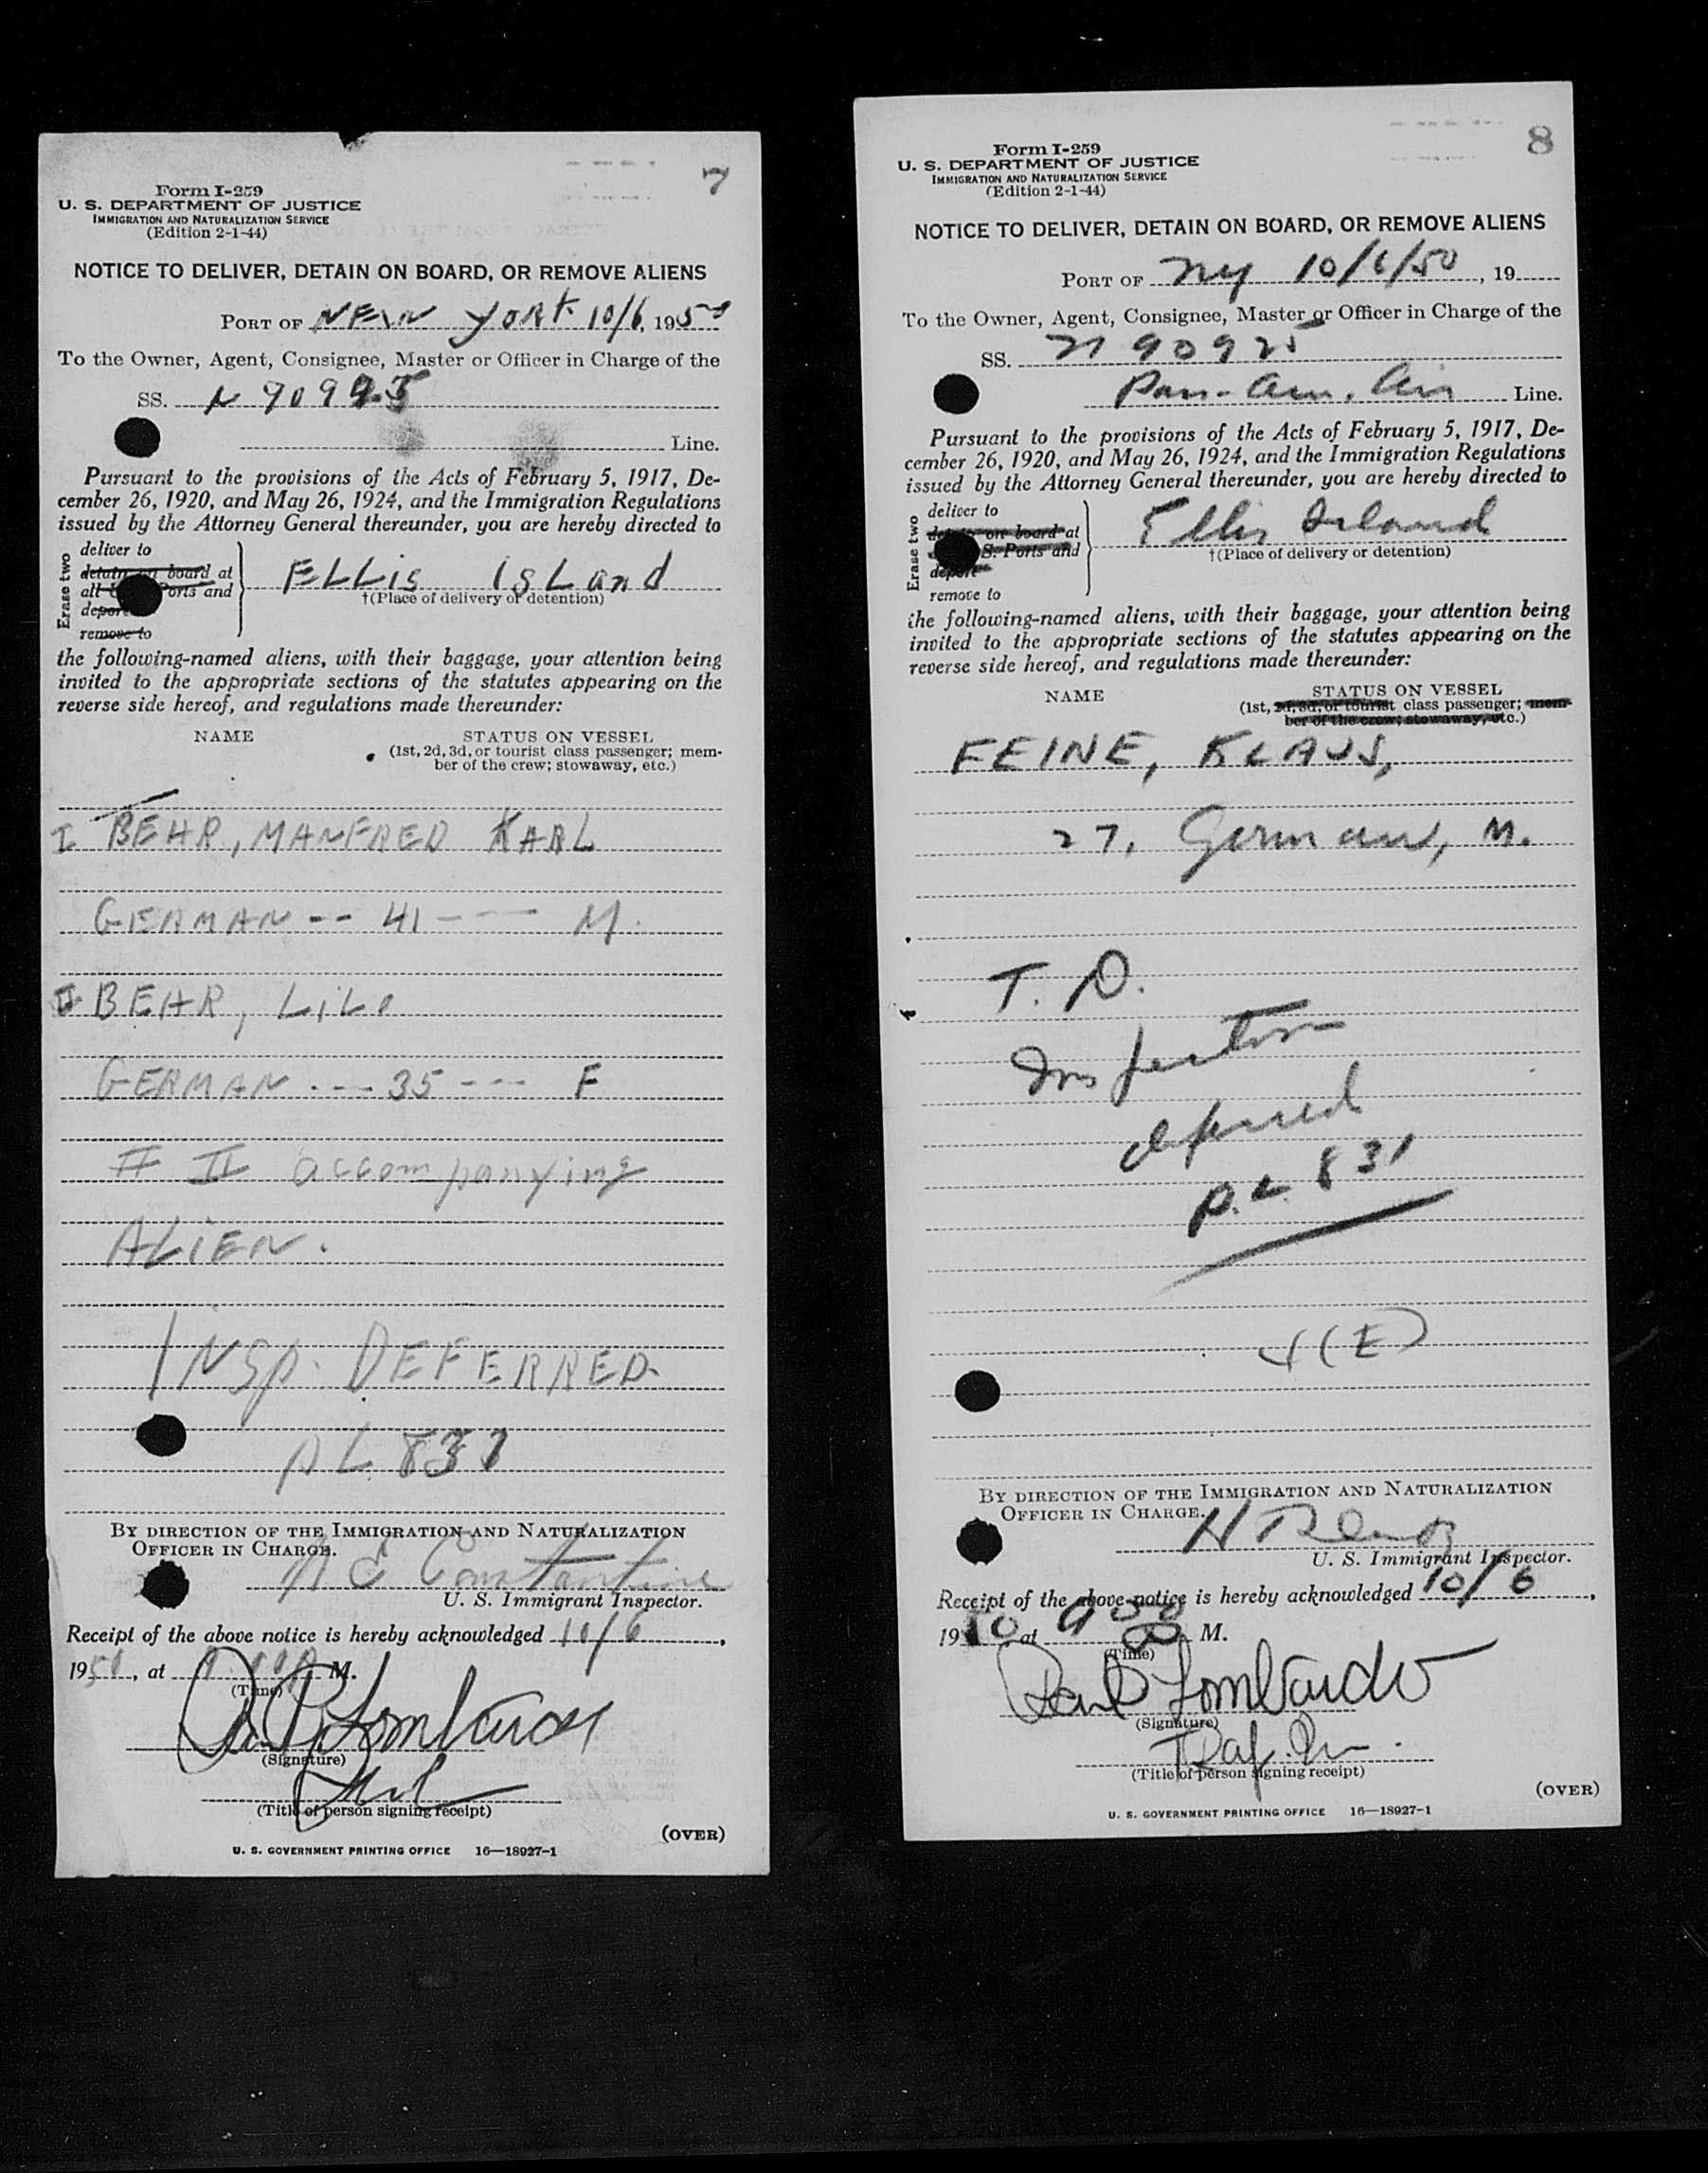 7
Form I-259
U. S. DEPARTMENT OF JUSTICE
IMMIGRATION AND NATURALIZATION SERVICE
(Edition 2-1-44)
NOTICE TO DELIVER, DETAIN ON BOARD, OR REMOVE ALIENS
PORT OF NEW YORK 10/6, 1950
To the Owner, Agent, Consignee, Master or Officer in Charge of the
SS. N 90925
Line.
Pursuant to the provisions of the Acts of February 5, 1917, De-
cember 26, 1920, and May 26, 1924, and the Immigration Regulations
issued by the Attorney General thereunder, you are hereby directed to
Erase two
deliver to
detain on board at
all Ports and
deport
remove to
ELLis IsLand
†(Place of delivery or detention)
the following-named aliens, with their baggage, your attention being
invited to the appropriate sections of the statutes appearing on the
reverse side hereof, and regulations made thereunder:
NAME STATUS ON VESSEL
(1st, 2d, 3d, or tourist class passenger; mem-
ber of the crew; stowaway, etc.)
I BEHR, MANFRED KARL
GERMAN -- 41 --- M.
II BEHR, LiLo
GERMAN --- 35 --- F
# II accompanying
ALiEN.
INSP. DEFERRED.
PL 831
BY DIRECTION OF THE IMMIGRATION AND NATURALIZATION
OFFICER IN CHARGE.
Constantine
U. S. Immigrant Inspector.
Receipt of the above notice is hereby acknowledged 10/6,
1950, at M.
(Time)
Lombardo
(Signature)
(Title of person signing receipt)
(OVER)
U. S. GOVERNMENT PRINTING OFFICE 16—18927-1
8
Form I-259
U. S. DEPARTMENT OF JUSTICE
IMMIGRATION AND NATURALIZATION SERVICE
(Edition 2-1-44)
NOTICE TO DELIVER, DETAIN ON BOARD, OR REMOVE ALIENS
PORT OF NY 10/6/50, 19
To the Owner, Agent, Consignee, Master or Officer in Charge of the
SS. N 90925
Pan-Am. Air Line.
Pursuant to the provisions of the Acts of February 5, 1917, De-
cember 26, 1920, and May 26, 1924, and the Immigration Regulations
issued by the Attorney General thereunder, you are hereby directed to
Erase two
deliver to
detain on board at
S. Ports and
deport
remove to
Ellis Island
†(Place of delivery or detention)
the following-named aliens, with their baggage, your attention being
invited to the appropriate sections of the statutes appearing on the
reverse side hereof, and regulations made thereunder:
NAME STATUS ON VESSEL
(1st, 2d, 3d, or tourist class passenger; mem-
ber of the crew; stowaway, etc.)
FEINE, KLAUS,
27, German, M.
T. D.
Inspection
deferred
P.L. 831
(E)
BY DIRECTION OF THE IMMIGRATION AND NATURALIZATION
OFFICER IN CHARGE.
U. S. Immigrant Inspector.
Receipt of the above notice is hereby acknowledged 10/6,
1950, at 9 50 M.
(Time)
Paul Lombardo
(Signature)
(Title of person signing receipt)
(OVER)
U. S. GOVERNMENT PRINTING OFFICE 16—18927-1